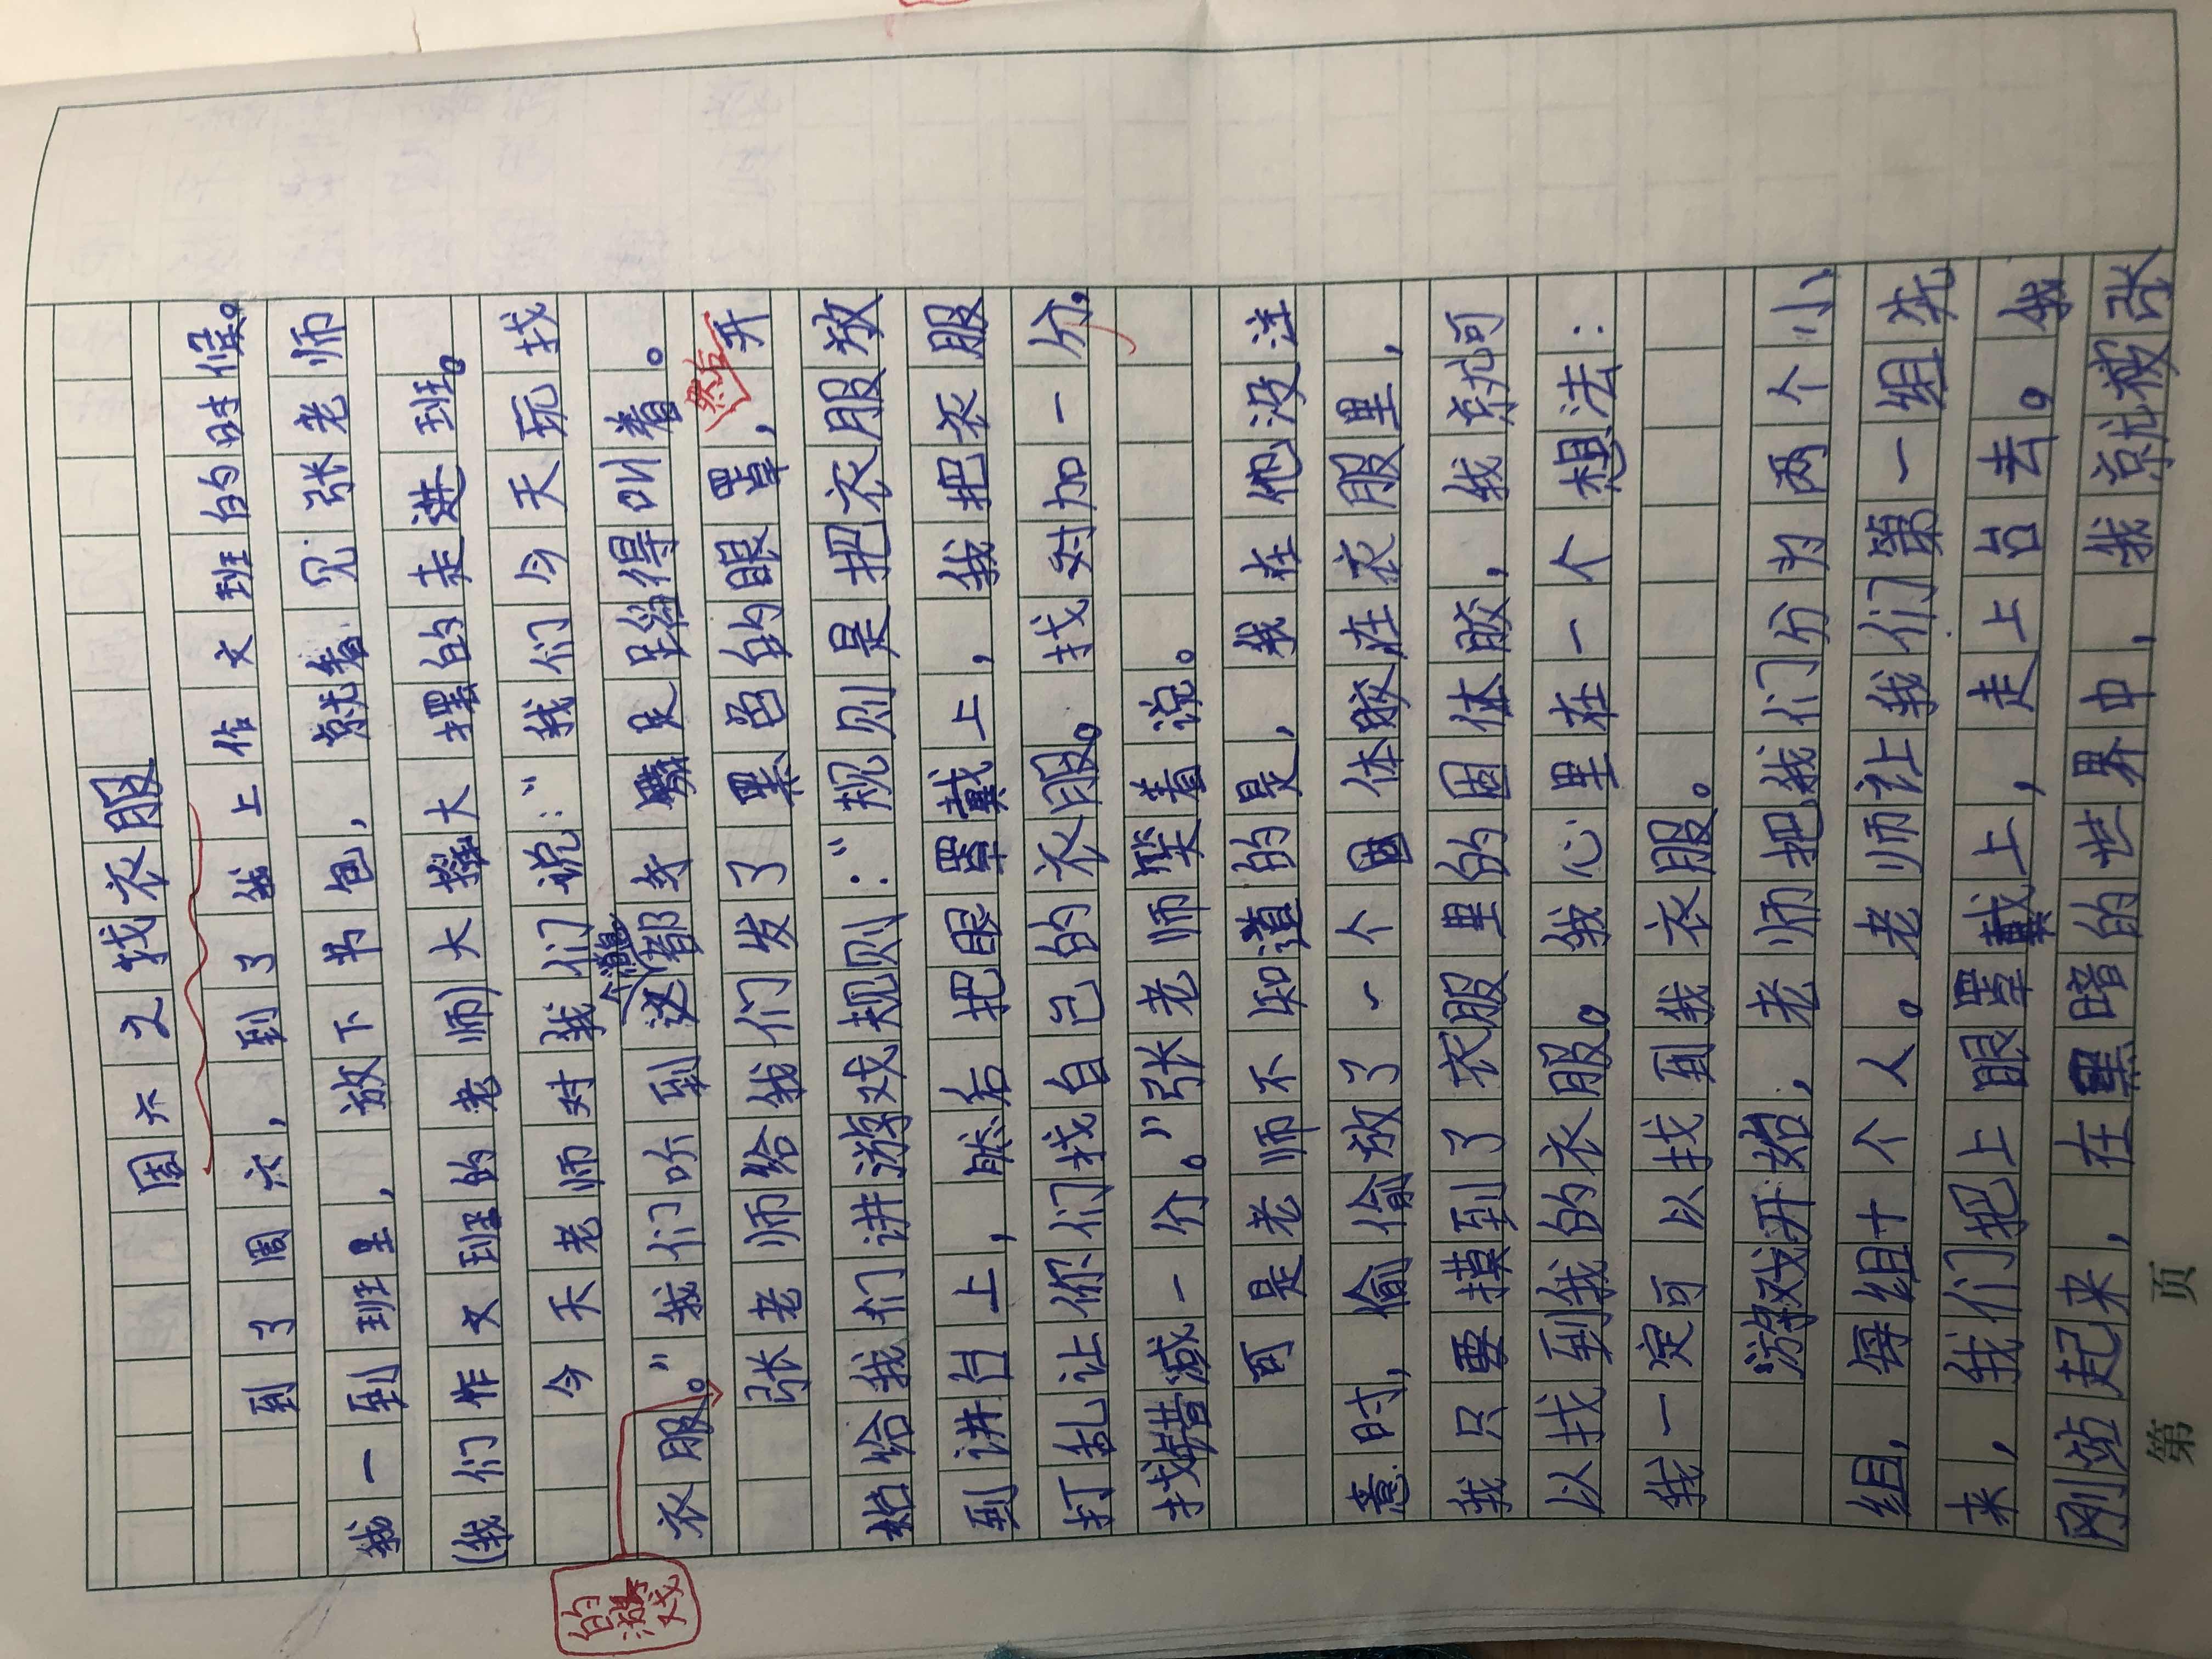 周六之找衣服
到了周六，到了我上作文班的时候。
我一到班里，放下书包，就看见张老师
(我们作文班的老师)大摇大摆的走进班。
今天老师对我们说：“我们今天玩找
衣服。”我们听到这个消息都手舞足蹈得叫着。
的游戏
张老师给我们发了黑色的眼罩，然后开
始给我们讲游戏规则：“规则是把衣服放
到讲台上，然后把眼罩戴上，我把衣服
打乱让你们找自己的衣服。找对加一分，
找错减一分。”张老师笑着说。
可是老师不知道的是，我在他没注
意时，偷偷放了一个固体胶在衣服里，
我只要摸到了衣服里的固体胶，我就可
以找到我的衣服。我心里在一个想法：
我一定可以找到我衣服。
游戏开始，老师把我们分为两个小
组，每组十个人。老师让我们第一组先
来，我们把上眼罩戴上，走上台去。我
刚站起来，在黑暗的世界中，我就被张
第 页